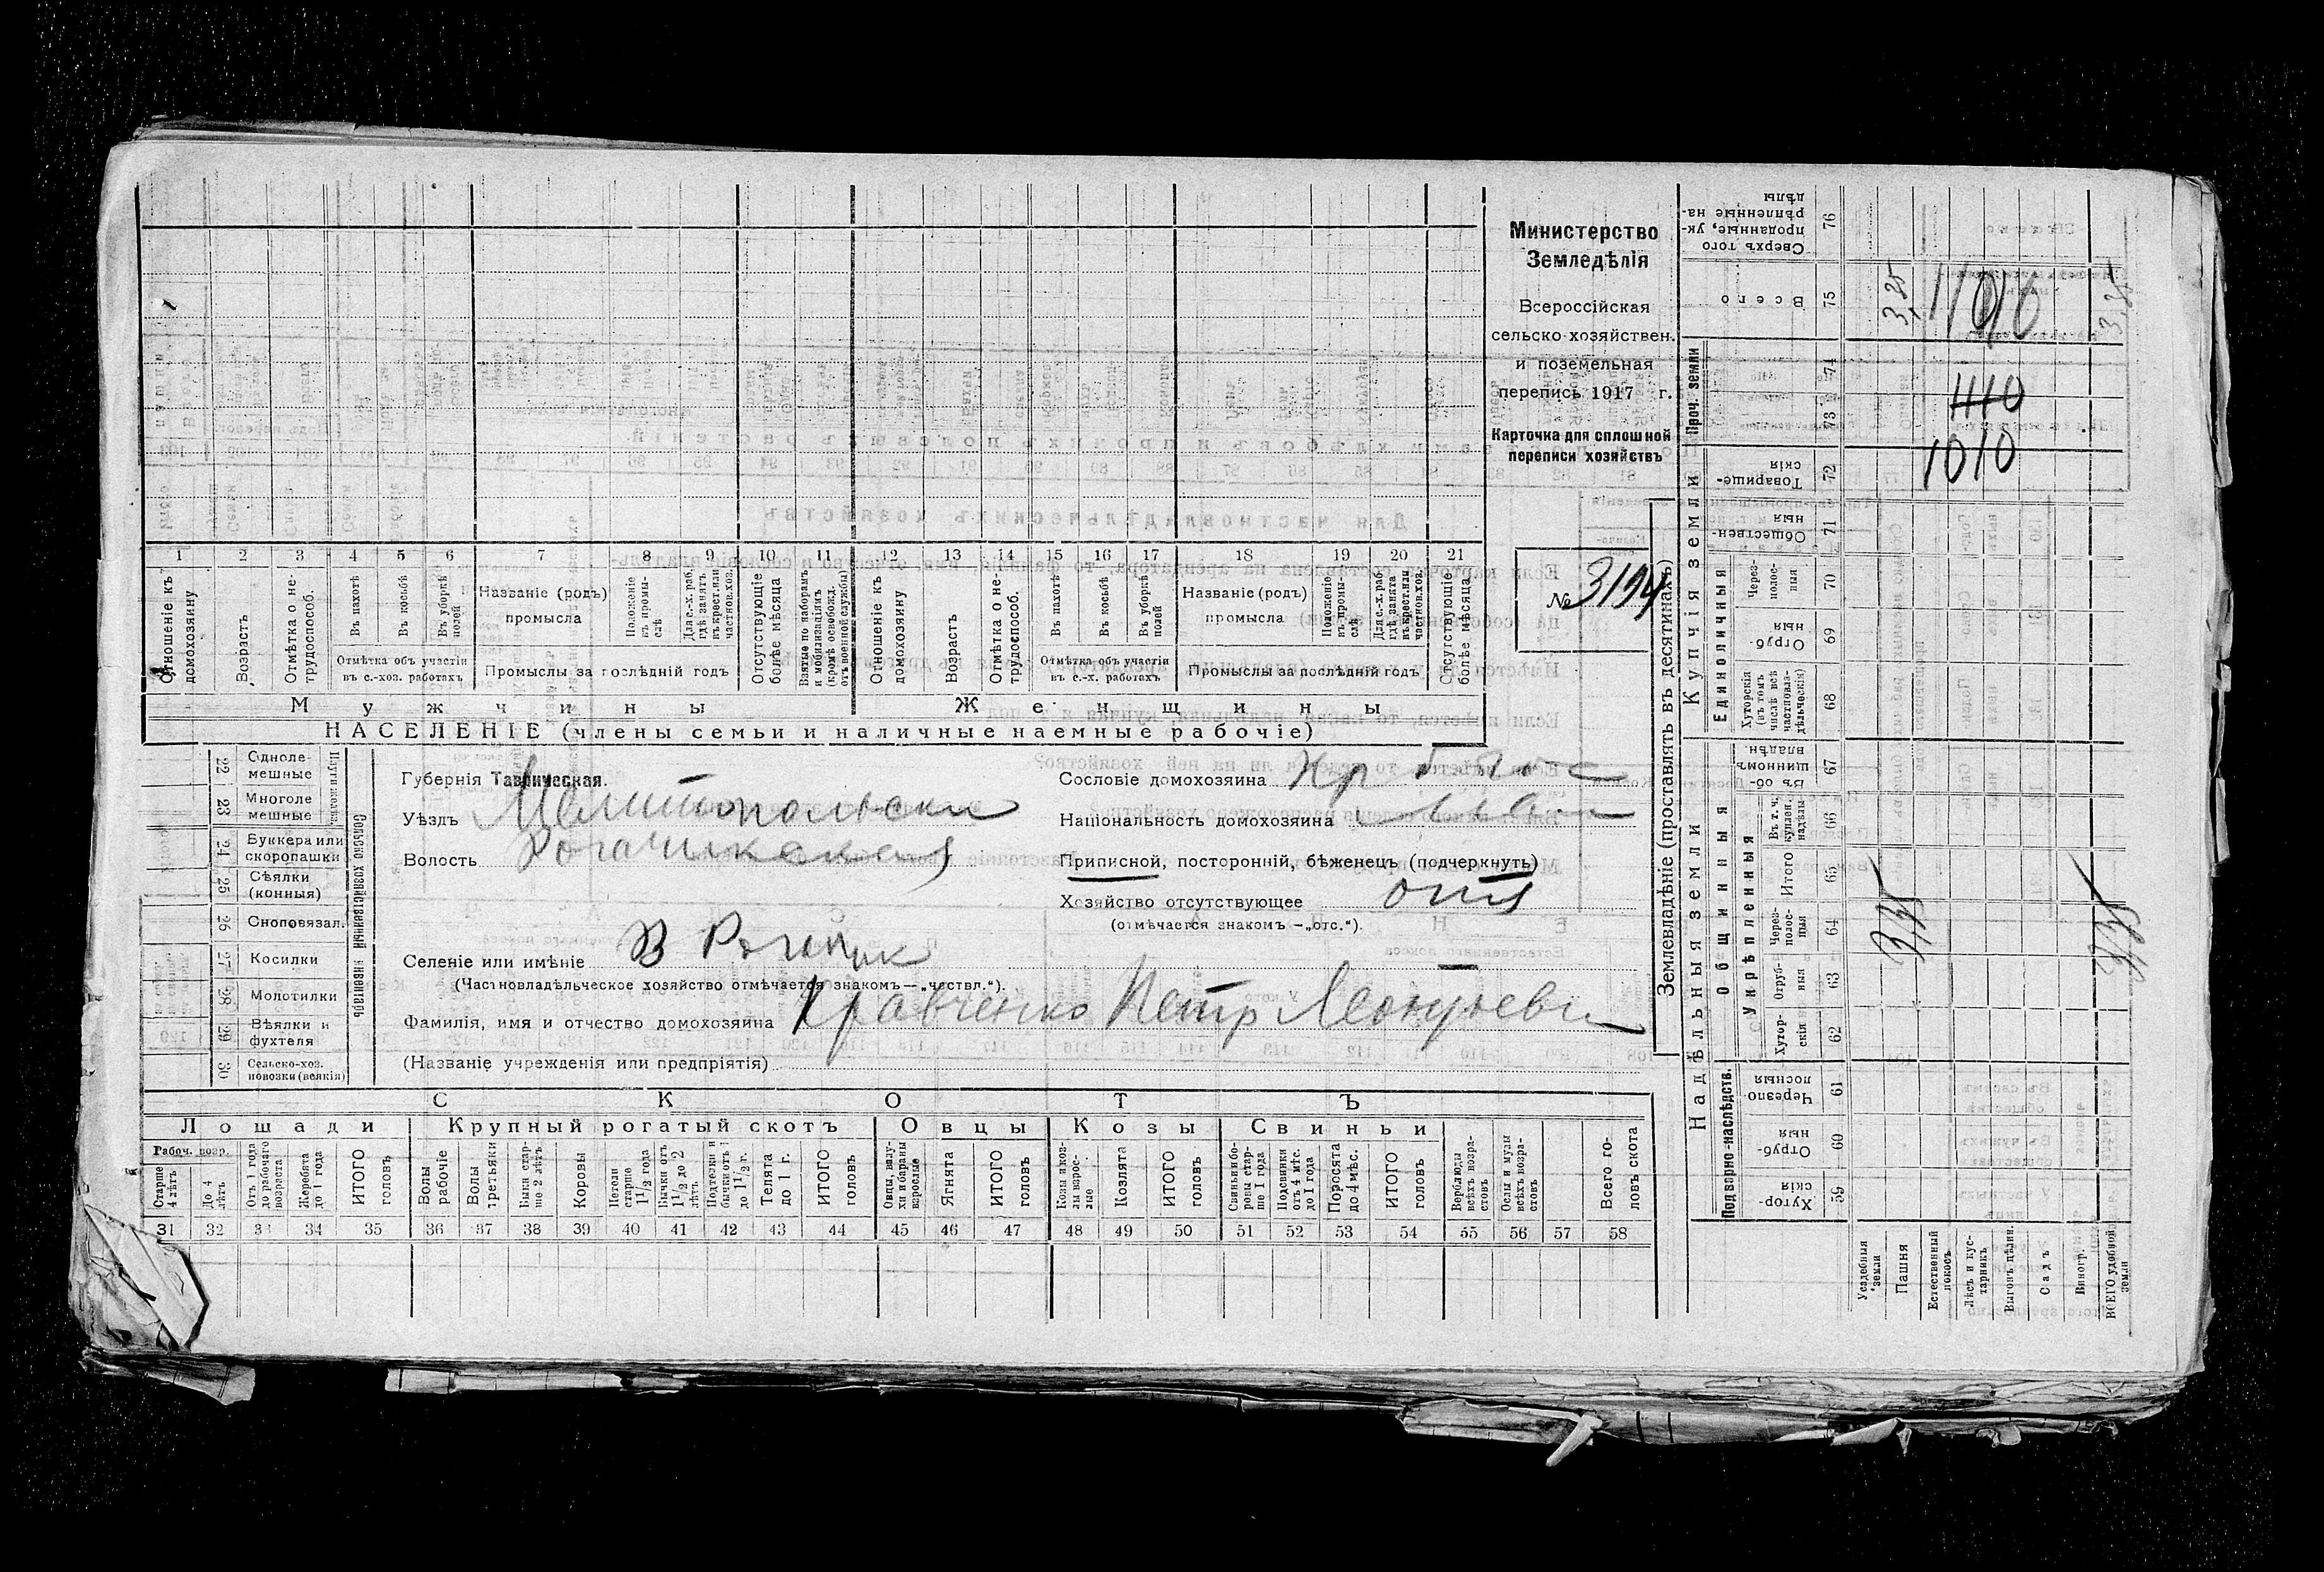 Министерство
Земледѣлія
Всероссійская
сельско-хозяйствен.
и поземельная
перепись 1917 г.
Карточка для сплошной
переписи хозяйствъ
№ 3194
1 2 3 4 5 6 7 8 9 10 11 12 13 14 15 16 17 18 19 20 21
Отношеніе къ домохозяину
Возрастъ
Отмѣтка о не-трудоспособ.
Въ пахотѣ
Въ косьбѣ
Въ уборкѣ полей
Отмѣтка объ участіи
въ с.-хоз. работахъ
Названіе (родъ)
промысла
Положеніе въ промы-слѣ
Для с.-х. раб. гдѣ занятъ въ крест. или частнов. хоз.
Промыслы за послѣдній годъ
Отсутствующіе болѣе мѣсяца
Взятые по наборамъ и мобилизаціямъ (кромѣ освобожд. отъ военной службы)
Отношеніе къ домохозяину
Возрастъ
Отмѣтка о не-трудоспособ.
Въ пахотѣ
Въ косьбѣ
Въ уборкѣ полей
Отмѣтка объ участіи
въ с.-х. работахъ
Названіе (родъ)
промысла
Положеніе въ промы-слѣ
Для с.-х. раб. гдѣ занята въ крест. или частнов. хоз.
Промыслы за послѣдній годъ
Отсутствующіе болѣе мѣсяца
Мужчины
Женщины
НАСЕЛЕНІЕ (члены семьи и наличные наемные рабочіе)
Сельско хозяйственный инвентарь
Плуги желѣз.
22 Одноле-мешные
23 Многоле мешные
24 Буккера или скоропашки
25 Сѣялки (конныя)
26 Сноповязал.
27 Косилки
28 Молотилки
29 Вѣялки и фухтеля
30 Сельско-хоз. повозки (всякія)
Губернія Таврическая.
Уѣздъ Мелитопольски
Волость Рогачикская
Селеніе или имѣніе В Рогачик
(Частновладѣльческое хозяйство отмѣчается знакомъ—„частвл.“).
Фамилія, имя и отчество домохозяина Кравченко Петр Леонтьевич
(Названіе учрежденія или предпріятія)
Сословіе домохозяина Кр
Національность домохозяина
Приписной, посторонній, бѣженецъ (подчеркнуть)
Хозяйство отсутствующее отс
(отмѣчается знакомъ —„отс.“).
СКОТЪ
Лошади
Крупный рогатый скотъ
Овцы
Козы
Свиньи
Рабоч. возр.
Старше 4 лѣтъ
До 4 лѣтъ
Отъ 1 года до рабочаго возраста
Жеребята до 1 года
ИТОГО головъ
Волы рабочіе
Волы третьяки
Быки стар-ше 2 лѣтъ
Коровы
Нетели старше 1½ года
Бычки отъ 1½ до 2 лѣтъ
Подтелки и бычки отъ 1 до 1½ г.
Телята до 1 г.
ИТОГО головъ
Овцы, валу-хи и бараны взрослые
Ягнята
ИТОГО головъ
Козы и коз-лы взрос-лые
Козлята
ИТОГО головъ
Свиньи и бо-ровы стар-ше 1 года
Подсвинки отъ 4 мѣс. до 1 года
Поросята до 4 мѣс.
ИТОГО головъ
Верблюды всѣхъ возра-стовъ
Ослы и мулы всѣхъ возра-стовъ
Всего го-ловъ скота
31 32 33 34 35 36 37 38 39 40 41 42 43 44 45 46 47 48 49 50 51 52 53 54 55 56 57 58
Землевладѣніе (проставлять въ десятинахъ)
Купчія земли
Надѣльныя земли
Проч. земли
Единоличныя
Общинныя
Укрѣпленныя
Подворно-наслѣдств.
76 Сверхъ того проданные, ук-рѣпленные на-дѣлы
75 Всего
74
73
72 Товарище-скія
71 Обществен-ныя
70 Через-полос-ныя
69 Отруб-ныя
68 Хуторскія (въ томъ числѣ всѣ частновла-дѣльческія)
67 Въ об-щинномъ владѣн.
66 Въ т. ч. куплен. надѣлы
65 Итого
64 Через-полос-ныя
63 Отруб-ныя
62 Хутор-скія
61 Черезпо-лосныя
60 Отруб-ныя
59 Хутор-скія
Усадебныя земли
Пашня
Естественный покосъ
Лѣсъ и кус-тарникъ
Выгонъ цѣлин.
Садъ
Виногр.
ВСЕГО удобной земли
3,25
3,25
1010